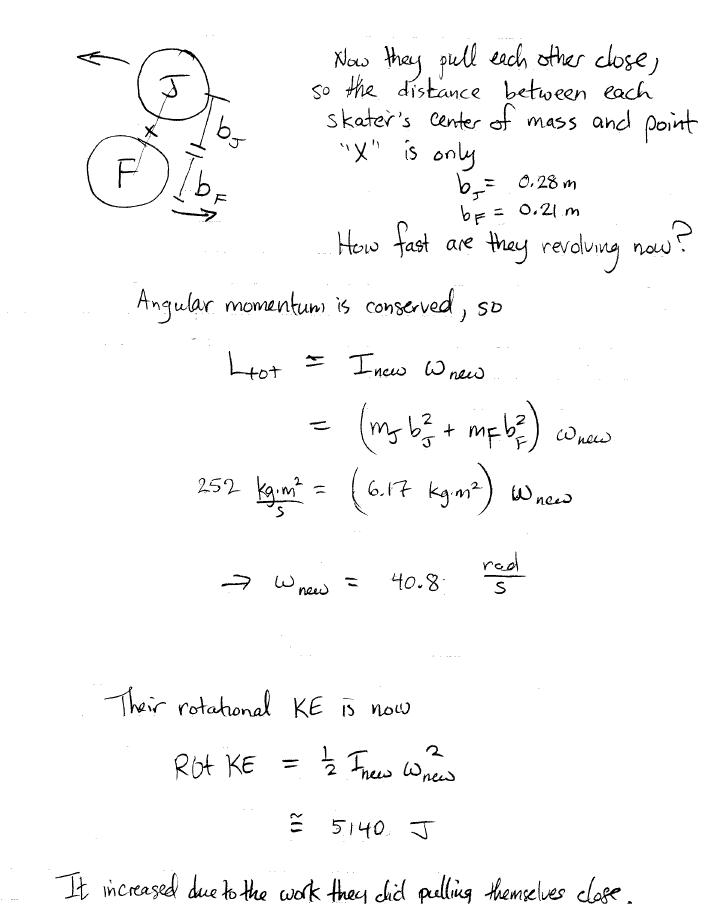 Now they pull each other close,
so the distance between each
skater's center of mass and point
"X" is only
b_J = 0.28 m
b_F = 0.21 m
How fast are they revolving now?
J
x
F
b_J
b_F
Angular momentum is conserved, so
L_tot = I_new ω_new
= (m_J b_J^2 + m_F b_F^2) ω_new
252 kg·m^2/s = (6.17 kg·m^2) ω_new
→ ω_new = 40.8 rad/s
Their rotational KE is now
Rot KE = 1/2 I_new ω_new^2
≅ 5140 J
It increased due to the work they did pulling themselves close.